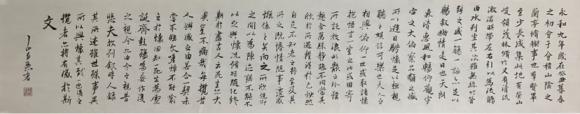 永和九年歲在癸丑暮春
之初會于會稽山陰之
蘭亭脩稧事也群賢畢
至少長咸集此地有崇山
峻領茂林脩竹又有清流
激湍暎帶左右引以為流觴
曲水列坐其次雖無絲竹管
弦之盛一觴一詠亦足以
暢敘幽情是日也天朗
氣清惠風和暢仰觀宇
宙之大俯察品類之盛
所以遊目騁懷足以極視
聽之娛信可樂也夫人之
相與俯仰一世或取諸懷
抱悟言一室之內或因寄
所託放浪形骸之外雖趣
舍萬殊靜躁不同當其
欣於所遇暫得於己快然
自足不知老之將至及其
所之既惓情隨事遷感
慨係之矣向之所欣俛仰
之間以為陳迹猶不能不
以之興懷況脩短隨化終
期於盡古人云死生亦大
矣豈不痛哉每攬昔
人興感之由若合一契未
嘗不臨文嗟悼不能喻
之於懷固知一死生為虛
誕齊彭殤為妄作後
之視今亦由今之視昔
悲夫故列敘時人錄
其所述雖世殊事異
所以興懷其致一也後之
攬者亦將有感於斯
文